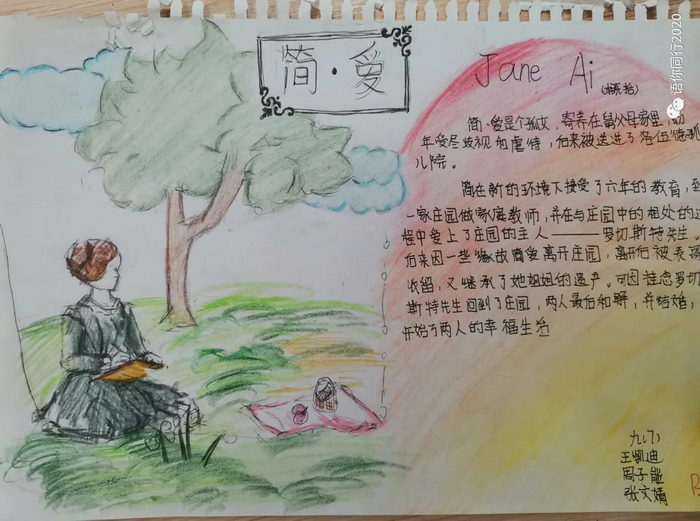 简·爱
Jane Ai
(梗概)
简·爱是个孤女，寄养在舅父母家里，
年受尽歧视和虐待，后来被送进了洛伍德
儿院。
简在新的环境下接受了六年的教育，到
一家庄园做家庭教师，并在与庄园中的相处的过
程中爱上了庄园的主人——罗切斯特先生。
后来因一些缘故简爱离开庄园，离开后被表
收留，又继承了她姐姐的遗产。可因挂念罗切
斯特先生回到了庄园，两人最后和解，并结婚，
开始了两人的幸福生活
九(7)
王凯迪
周子能
张文婧
语你同行2020